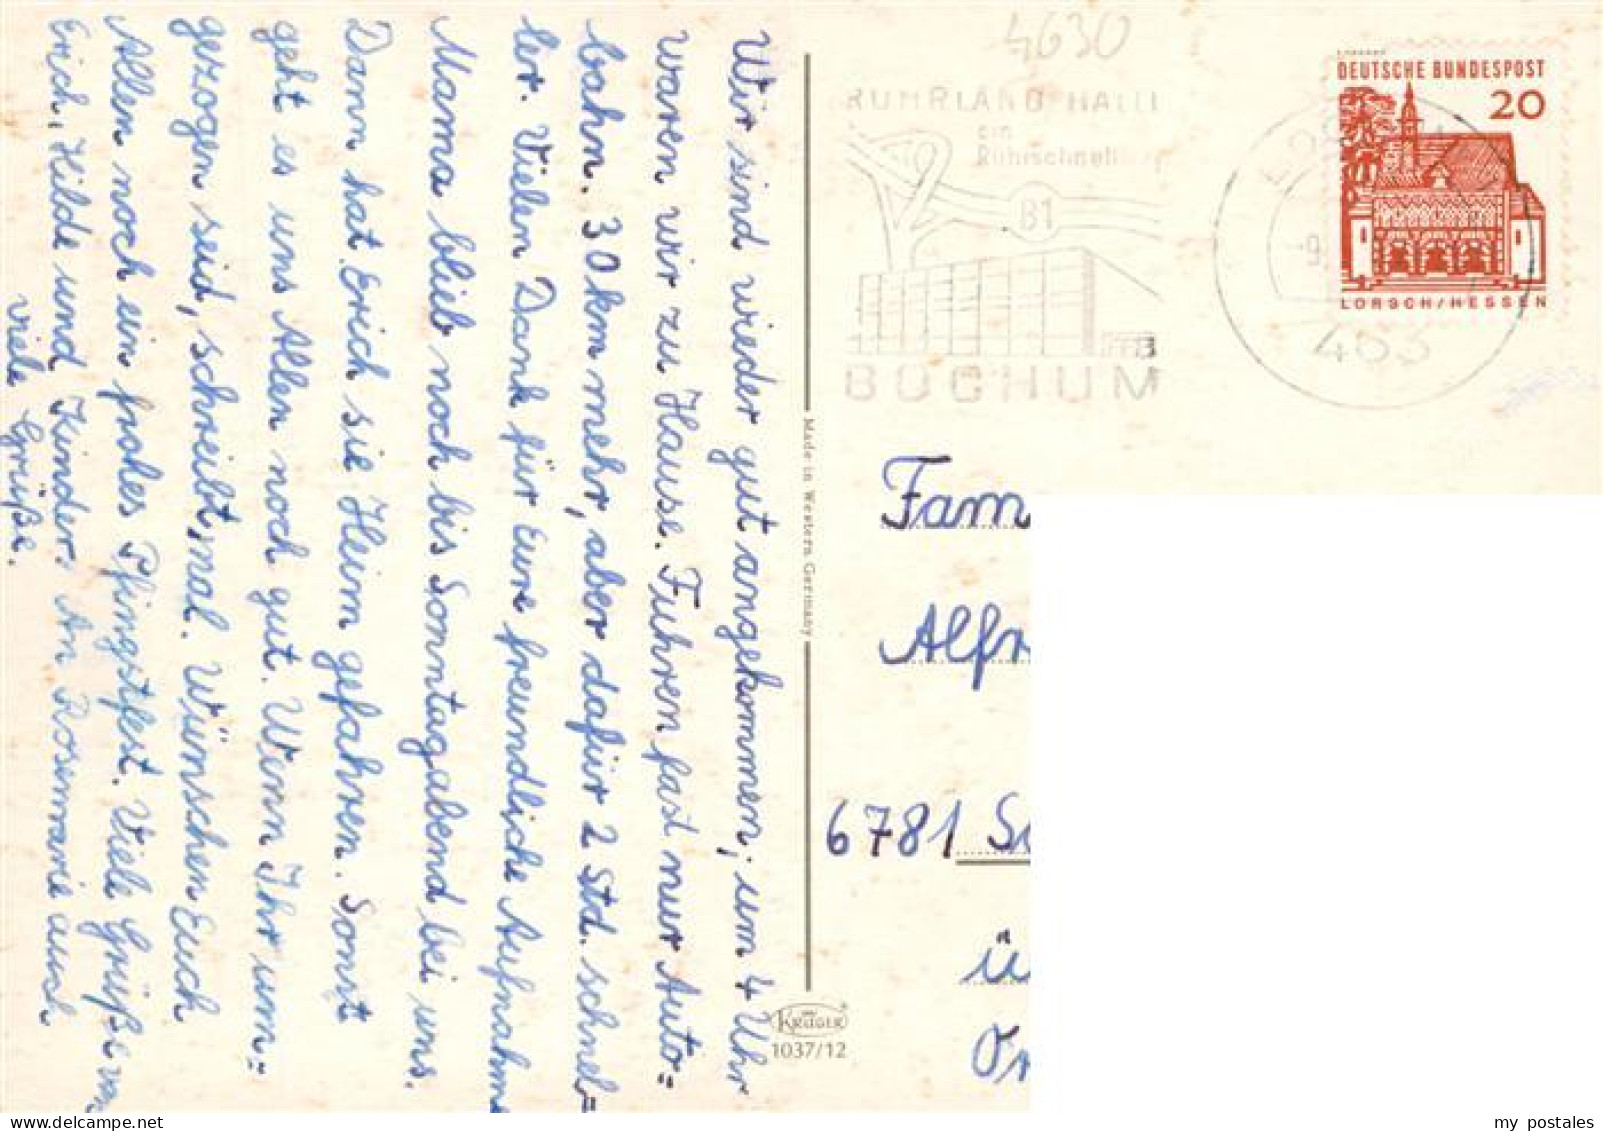 Wir sind wieder gut angekommen; um 4 Uhr
waren wir zu Hause. Fuhren fast nur Auto=
bahn. 30 km mehr, aber dafür 2 Std. schnel=
ler. Vielen Dank für Eure freundliche Aufnahme
Mama blieb noch bis Sonntagabend bei uns.
Dann hat Erich sie Heim gefahren. Sonst
geht es uns Allen noch gut. Wenn Ihr um=
gezogen seid, schreibt mal. Wünschen Euch
Allen noch ein frohes Pfingstfest. Viele Grüße von
Erich, Hilde und Kinder. An Rosemarie auch
viele Grüße.
Made in Western Germany
KRÜGER
1037/12
4630
RUHRLAND HALLE
ein
Ruhrschnell
B1
BOCHUM
DEUTSCHE BUNDESPOST
20
LORSCH/HESSEN
463
Fam
Alfr
6781
ü
my postales